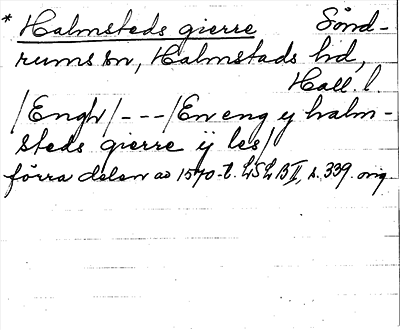 * Halmsteds gierre Sönd-
rums sn, Halmstads hd,
Hall. l.
/Engh/ - - - /En eng y halm-
steds gierre ÿ les/
förra delen av 1570-t. LSLB II, s. 339. orig.